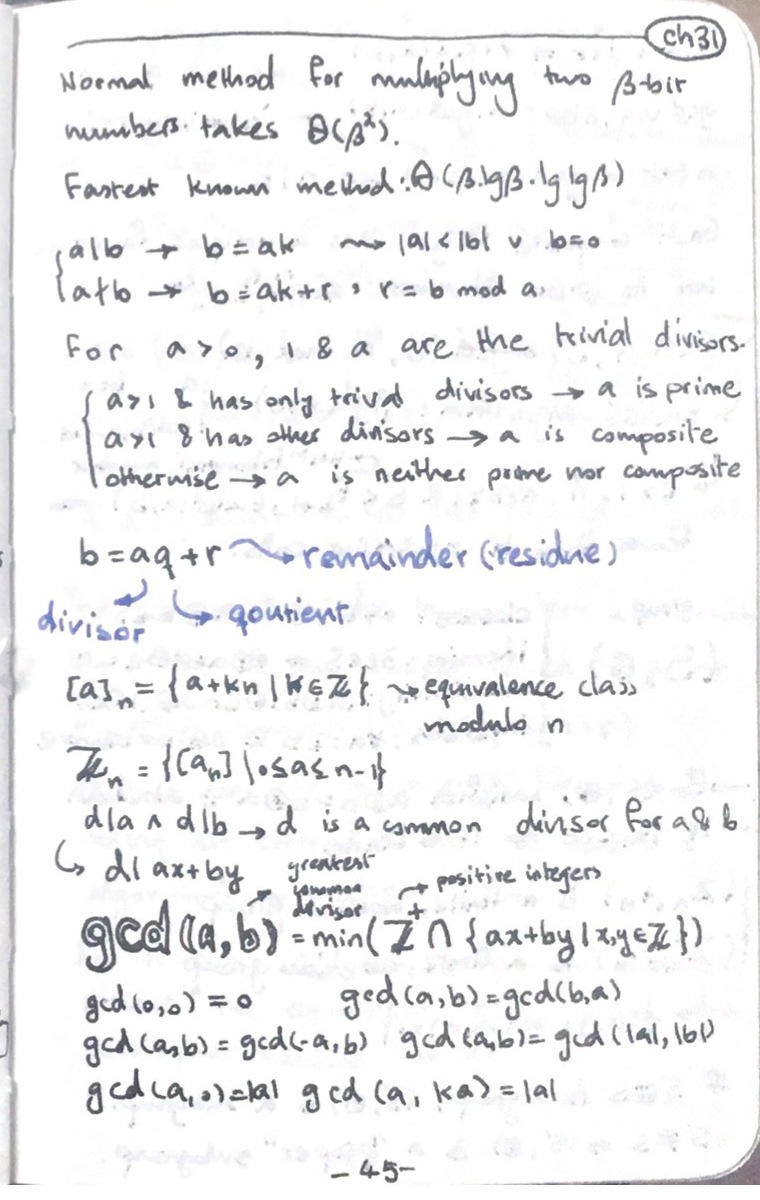 ch31
Normal method for multiplying two β-bit
numbers takes Θ(β²).
Fastest known method: Θ(β.lgβ.lg lgβ)
{ a|b → b=ak ⇝ |a|<|b| ∨ b=0
a∤b → b=ak+r, r= b mod a
For a>0, 1 & a are the trivial divisors.
{ a>1 & has only trival divisors → a is prime
a>1 & has other divisors → a is composite
otherwise → a is neither prime nor composite
b=aq+r → remainder (residue)
divisor → qoutient
[a]n = {a+kn | k∈ℤ} ⇝ equivalence class
modulo n
ℤn = {[an] | 0≤a≤n-1}
d|a ∧ d|b → d is a common divisor for a & b
↳ d| ax+by
greatest
common
divisor
→ positive integers
gcd(a,b) = min(ℤ⁺ ∩ {ax+by | x,y∈ℤ})
gcd(0,0) = 0 gcd(a,b)=gcd(b,a)
gcd(a,b) = gcd(-a,b) gcd(a,b)= gcd(|a|,|b|)
gcd(a,0)=|a| gcd(a, ka) = |a|
-45-